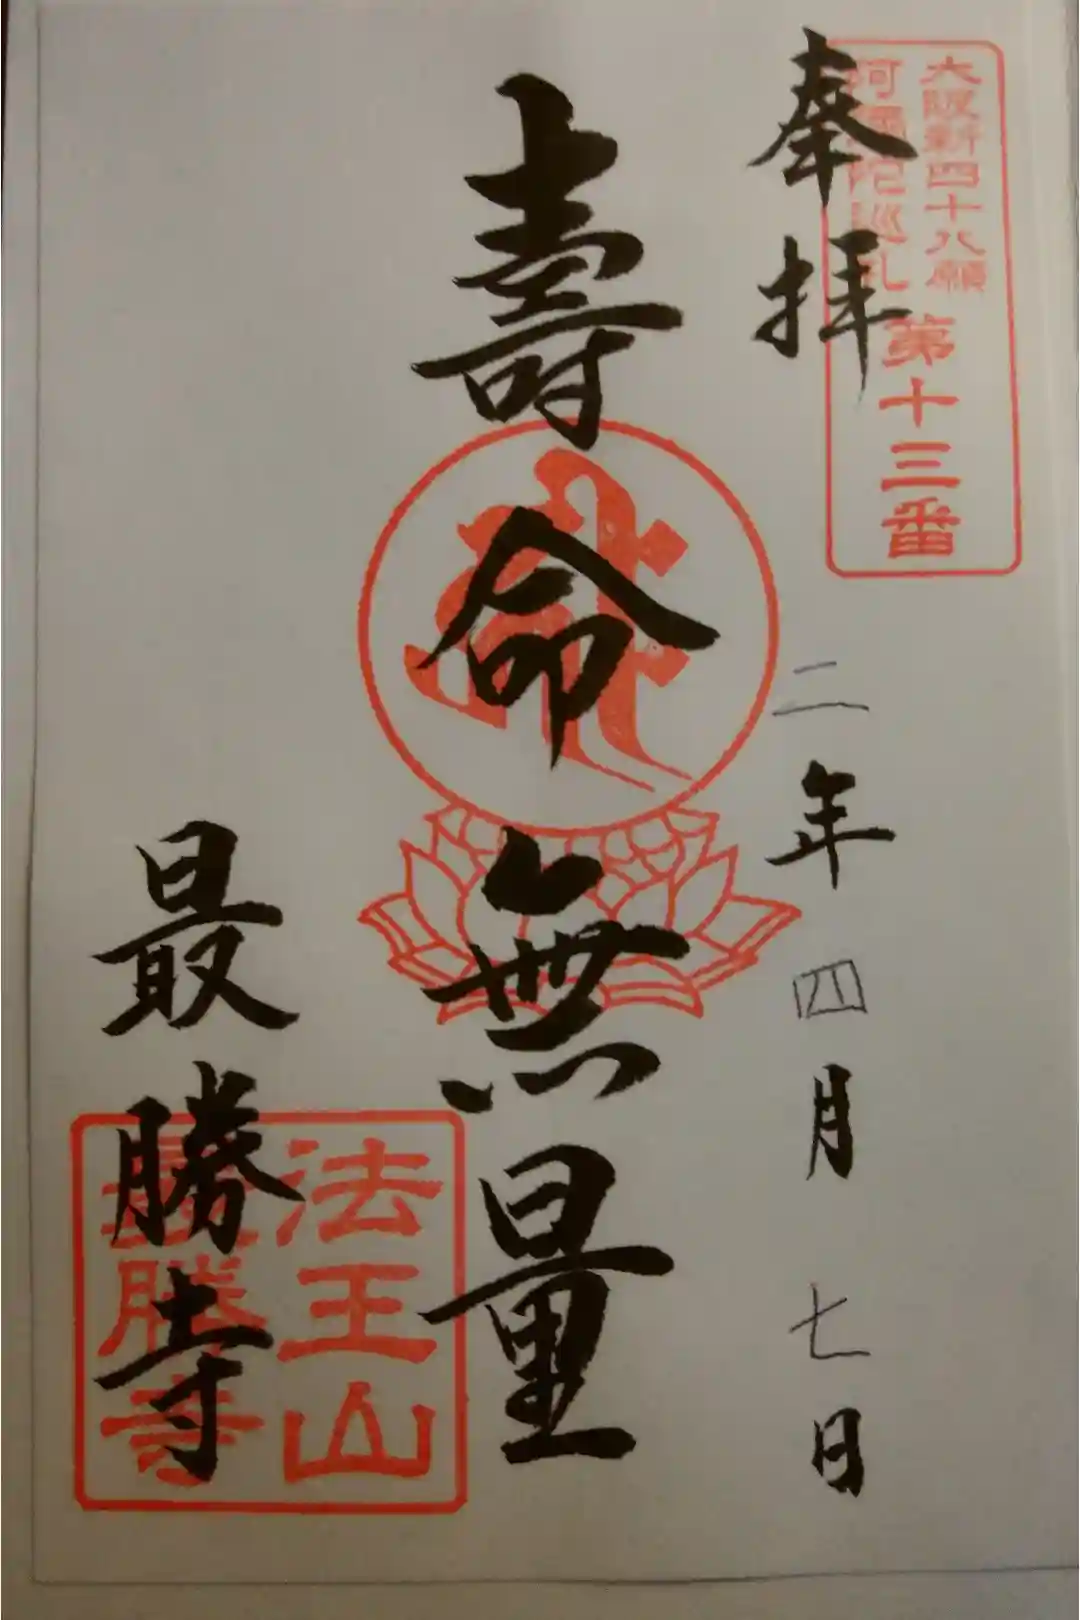 大阪新四十八願
阿彌陀巡礼
第十三番
奉拝
二年四月七日
壽命無量
法王山
最勝寺
最勝寺